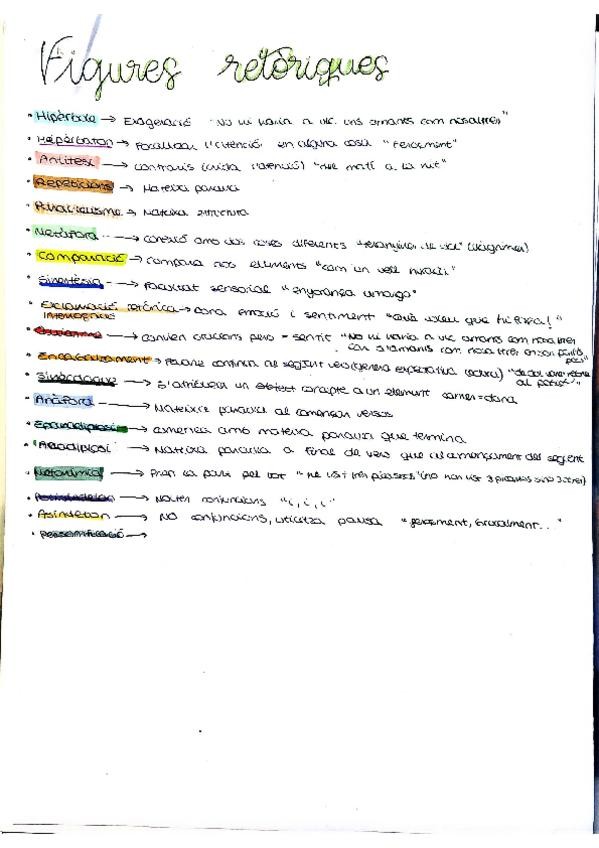 Figures retòriques
• Hipèrbole → Exageració "No hi havia a vic uns amants com nosaltres"
• Hipèrbaton → Focalitzar l'atenció en alguna cosa "feroçment"
• Antítesi → contraris (crida l'atenció) matí a la nit"
• Repeticions → Mateixa paraula
• Paral·lelisme → Mateixa estructura
• Metàfora → connexió amb dos coses diferents (llàgrimes)
• Comparació → compara dos elements "com un vell huracà"
• Sinestèsia → facultat sensorial "enyorança amarga"
• Exclamació retòrica → dona emoció i sentiment "què voleu que hi faça!"
Interrogació
→ canvien oracions però = sentit "No hi havia a vic amants com nosaltres
com nosaltres
• Encavalcament → continua al següent vers (genera expectativa lectura)
• Sinècdoque → S'atribueix un object concepte a un element
• Anàfora → Mateixa paraula al començar versos
• Epanadiplosi → comença amb mateixa paraula que termina
• Anadiplosi → Mateixa paraula a final de vers que al començament del següent
• Metonímia → Pren la part pel tot (no han vist 3 sino 3
• Polisíndeton → Moltes conjuncions "i, i, i"
• Asíndeton → NO conjuncions, utilitza pausa "feroçment, brutalment..."
• Personificació →